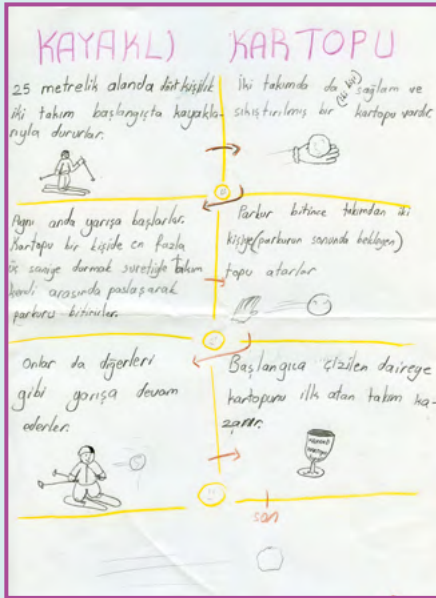 KAYAKLI KARTOPU
25 metrelik alanda dört kişilik
iki takım başlangıçta kayakla-
rıyla dururlar.
İki takımda da (iki kişi) sağlam ve
sıkıştırılmış bir kartopu vardır.
Aynı anda yarışa başlarlar.
Kartopu bir kişide en fazla
üç saniye durmak suretiyle takım
kendi arasında paslaşarak
parkuru bitirirler.
Parkur bitince takımdan iki
kişiye (parkurun sonunda bekleyen)
topu atarlar
Onlar da diğerleri
gibi yarışa devam
ederler.
Başlangıca çizilen daireye
kartopunu ilk atan takım ka-
zanır.
son